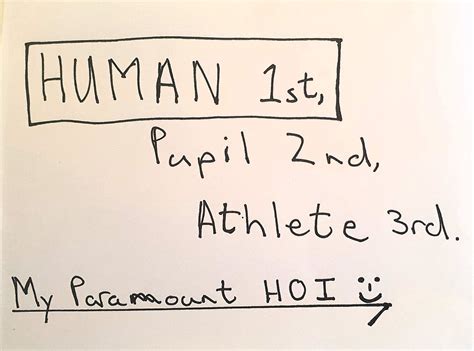 HUMAN 1st,
Pupil 2nd,
Athlete 3rd.
My Paramount HOI